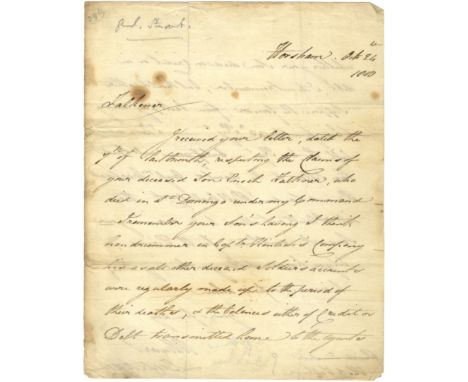 Horsham. Octr 24th
1810
Falkener
I received your letter, dated the
9th of last month, respecting the claims of
your deceased Son Enoch Falkener, who
died in St. Domingo under my Command
I remember your Son's having
been drummer in Capt. Company
his & all other deceased Soldiers accounts
were regularly made up to the period of
their deaths, & the balances either of Credit or
Debt transmitted home to the